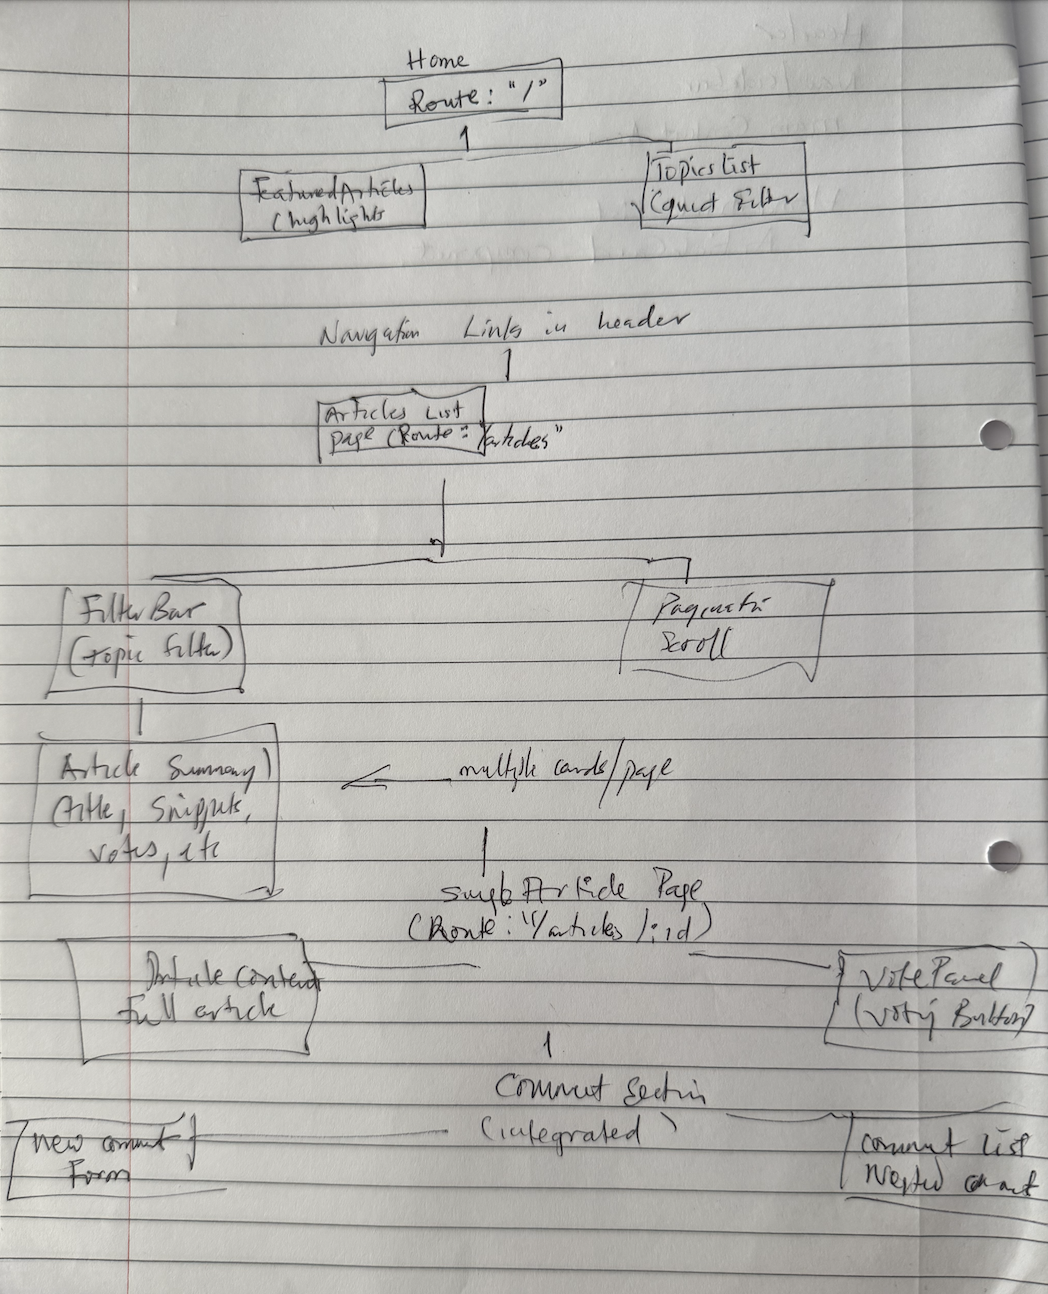 Home
Route: "/"
Featured Articles
(highlights
Topics List
Filter
Navigation Links in header
Articles List
page (Route: "/articles"
Filter Bar
(topic filter)
Scroll
Article Summary
(title, Snippets,
votes, etc
multiple cards/page
Single Article Page
(Route: "/articles/:id)
Article Content
Full article
Vote Panel
(Voting Button)
Comment Section
(integrated)
new comment
Form
comment list
Nested comment